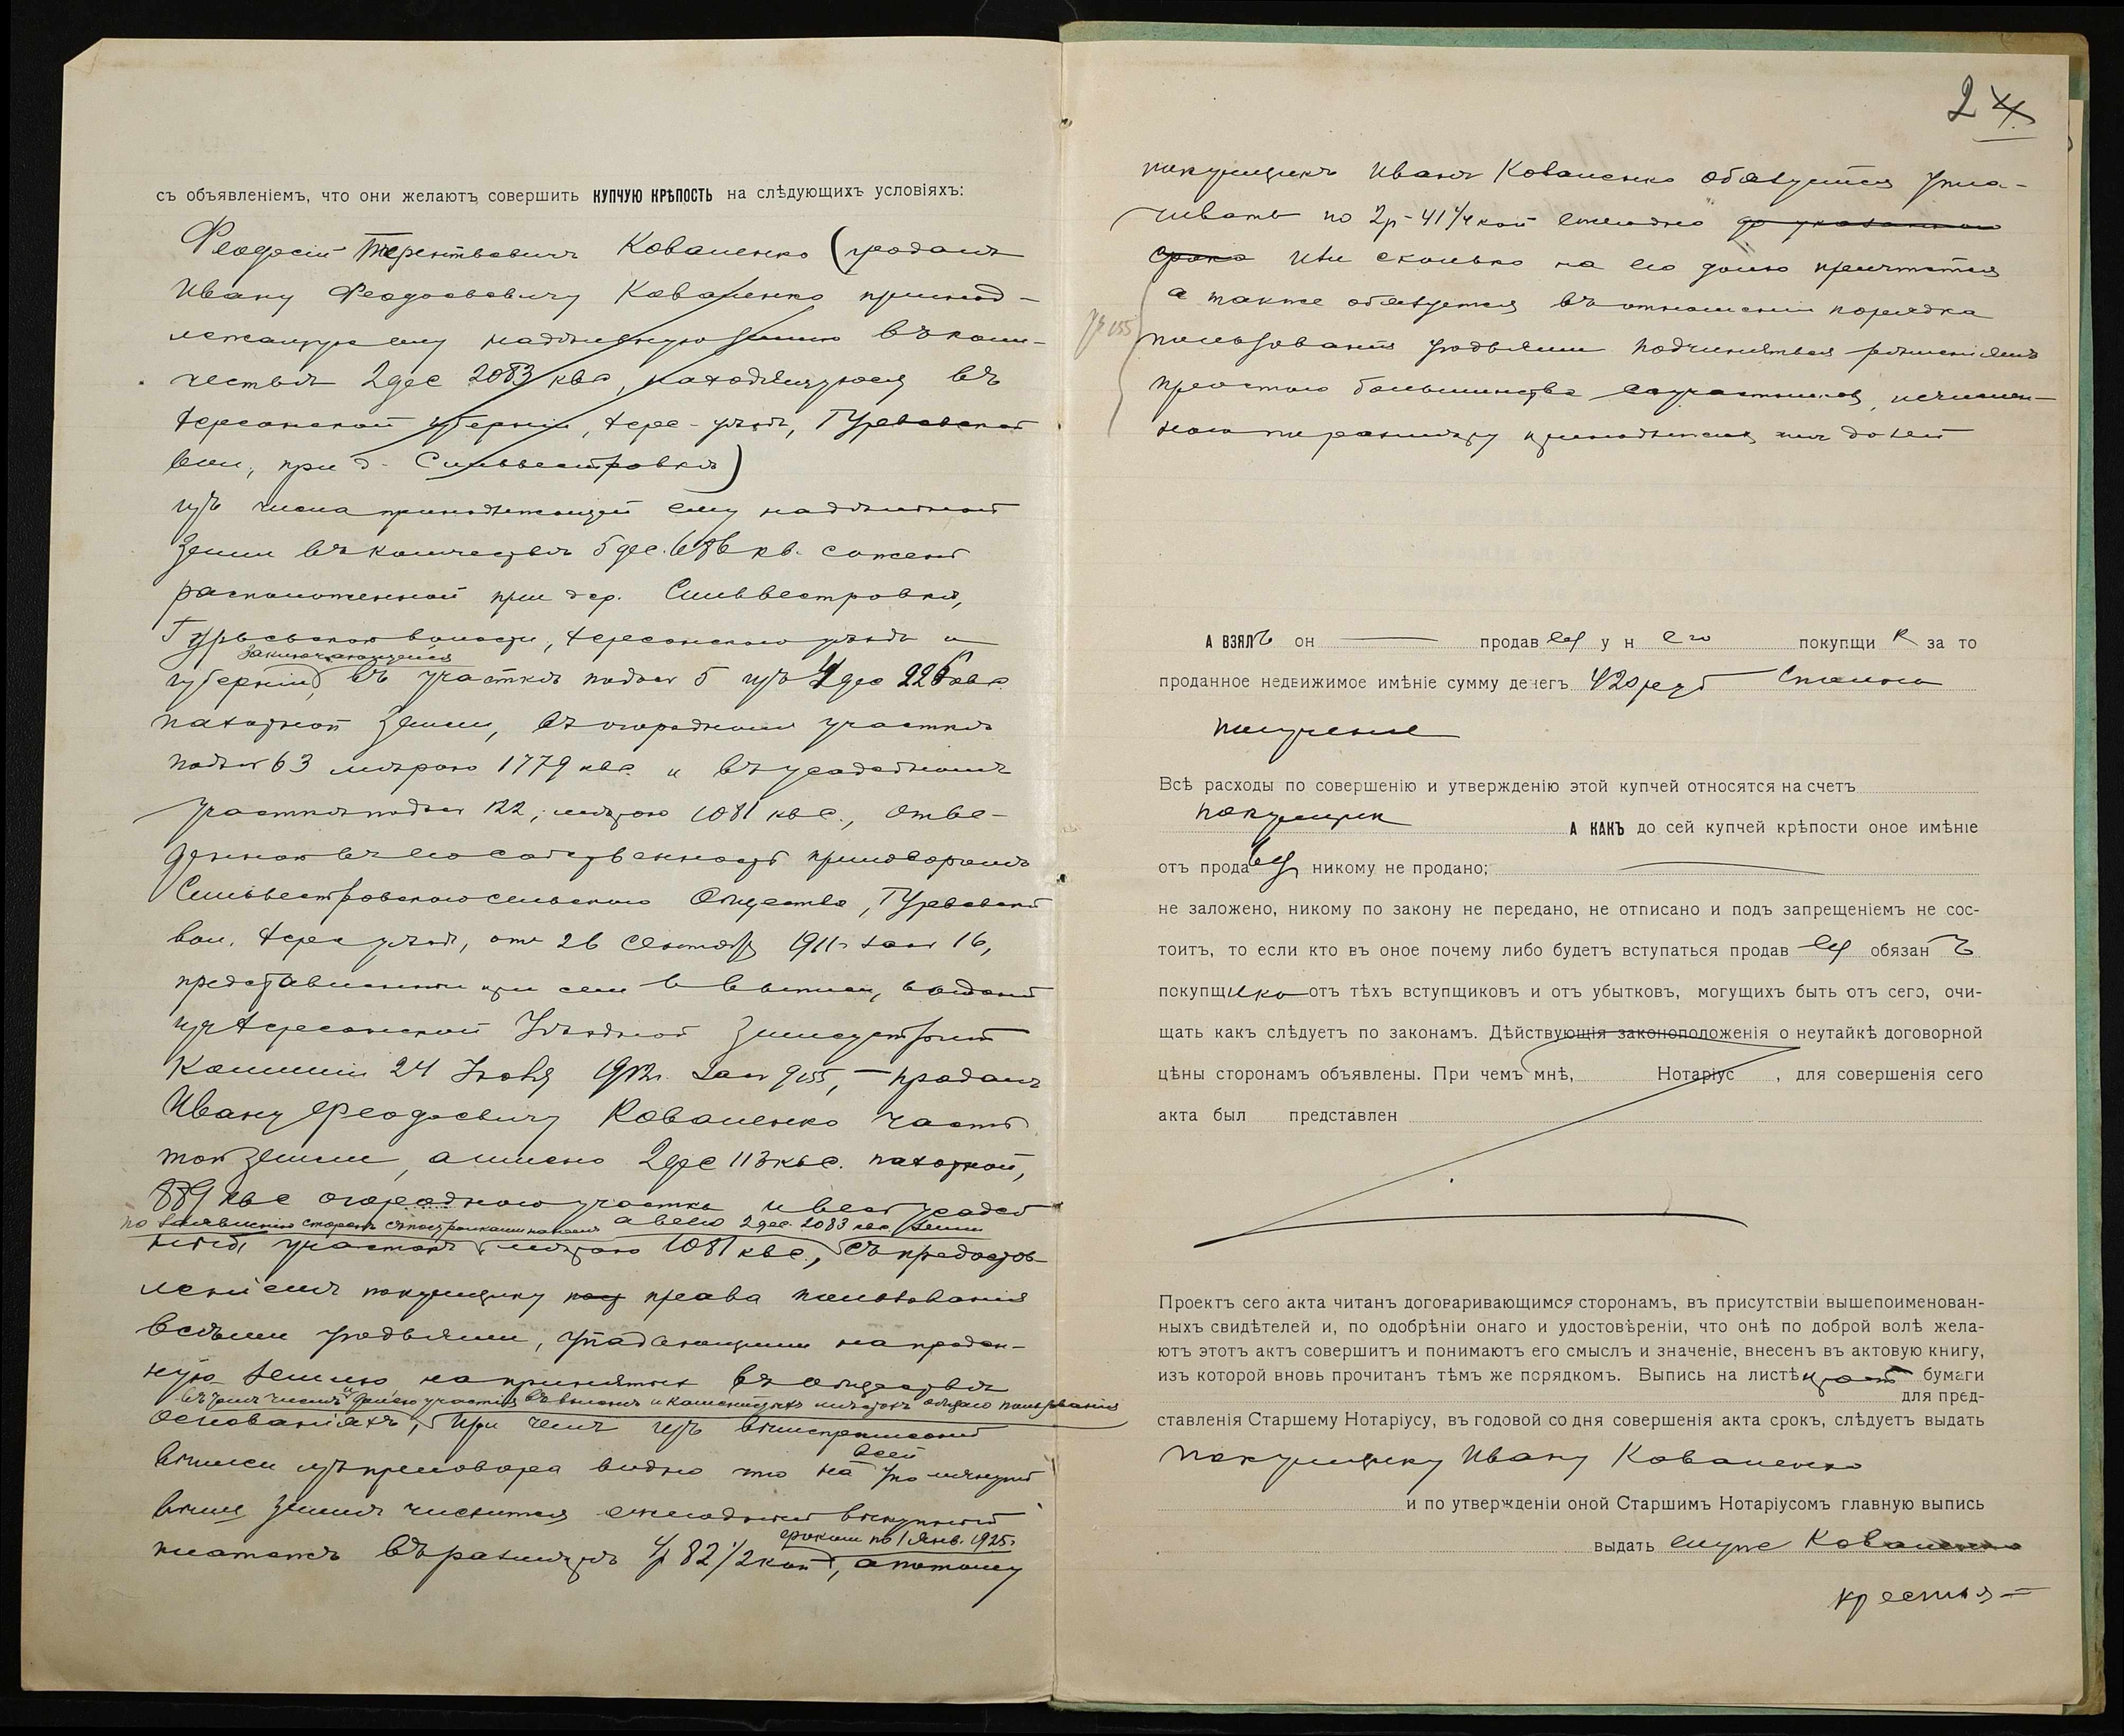 съ объявленіемъ, что они желаютъ совершить КУПЧУЮ КРѢПОСТЬ на слѣдующихъ условіяхъ:
Феодосій Терентьевичъ Коваленко (продалъ
Ивану Феодосьевичу Коваленко принад-
лежащую ему надѣльную землю въ коли-
чествѣ 2 дес 2083 кв с, находящуюся въ
Херсонской губерніи, Херс- уѣздѣ, Гурьевской
вол., при д. Сильвестровкѣ)
изъ числа принадлежащей ему надѣльной
земли въ количествѣ 5 дес. 686 кв. сажень
расположенной при дер. Сильвестровкѣ,
Гурьевской волости, Херсонскаго уѣзда и
заключающейся
губерніи, въ участкѣ подъ № 5 изъ 4 дес 226 кв с.
пахотной земли, въ огородномъ участкѣ
подъ № 63 мѣрою 1779 кв с. и въ усадебномъ
участкѣ подъ № 122, мѣрою 1081 кв с., отве-
денной въ его собственность приговоромъ
Сильвестровскаго сельскаго Общества, Гурьевской
вол. Херс уѣзда, отъ 26 Сентября 1911 г за № 16,
представленной при семъ въ выписи, выданной
изъ Херсонской Уѣздной Землеустроит
Комиссіи 24 1912 г. за № 955, – продалъ
Ивану Феодосьевичу Коваленко часть
той земли, а именно 2 дес 113 кв с. пахотной,
889 кв с огороднаго участка и весь усадеб
по заявленію сторонъ съ постройками на немъ а всего 2 дес. 2083 кв с земли
ный участокъ мѣрою 1081 кв с., съ предостав-
леніемъ покупщику права пользованія
всѣми угодьями, упадающими на продан-
ную землю на принятыхъ въ обществѣ
въ томъ числѣ и долею участія въ выгонѣ и мѣстахъ общаго пользованія
основаніяхъ, При чемъ изъ вышеписанной
всей
выписи изъ приговора видно что на упомянутой
выше землѣ числится ежегодный выкупной
срокомъ по 1 Янв. 1925 г
платежъ въ размѣрѣ 4 р 82 1/2 коп, а потому
2 4
покупщикъ Иванъ Коваленко обязуется упла-
чивать по 2 р- 41 1/4 коп ежегодно до указаннаго
срока или сколько на его долю причтется
а также обязуется въ отношеніи порядка
пользованія угодьями подчиняться рѣшеніямъ
простого большинства соучастниковъ, исчислен-
наго по размѣру принадлежащихъ имъ долей
А ВЗЯЛЪ он продавец у него покупщик за то
проданное недвижимое имѣніе сумму денегъ 420 руб сполна
полученные
Всѣ расходы по совершенію и утвержденію этой купчей относятся на счетъ
покупщик А КАКЪ до сей купчей крѣпости оное имѣніе
отъ продавец никому не продано;
не заложено, никому по закону не передано, не отписано и подъ запрещеніемъ не сос-
тоитъ, то если кто въ оное почему либо будетъ вступаться продавец обязанъ
покупщика отъ тѣхъ вступщиковъ и отъ убытковъ, могущихъ быть отъ сего, очи-
щать какъ слѣдуетъ по законамъ. Дѣйствующія законоположенія о неутайкѣ договорной
цѣны сторонамъ объявлены. При чемъ мнѣ, Нотаріус , для совершенія сего
акта был представлен
Проектъ сего акта читанъ договаривающимся сторонамъ, въ присутствіи вышепоименован-
ныхъ свидѣтелей и, по одобрѣніи онаго и удостовѣреніи, что онѣ по доброй волѣ жела-
ютъ этотъ актъ совершить и понимаютъ его смыслъ и значеніе, внесенъ въ актовую книгу,
изъ которой вновь прочитанъ тѣмъ же порядкомъ. Выпись на листѣ прост бумаги
для пред-
ставленія Старшему Нотаріусу, въ годовой со дня совершенія акта срокъ, слѣдуетъ выдать
покупщику Ивану Коваленко
и по утвержденіи оной Старшимъ Нотаріусомъ главную выпись
выдать ему же Коваленко
крестья-